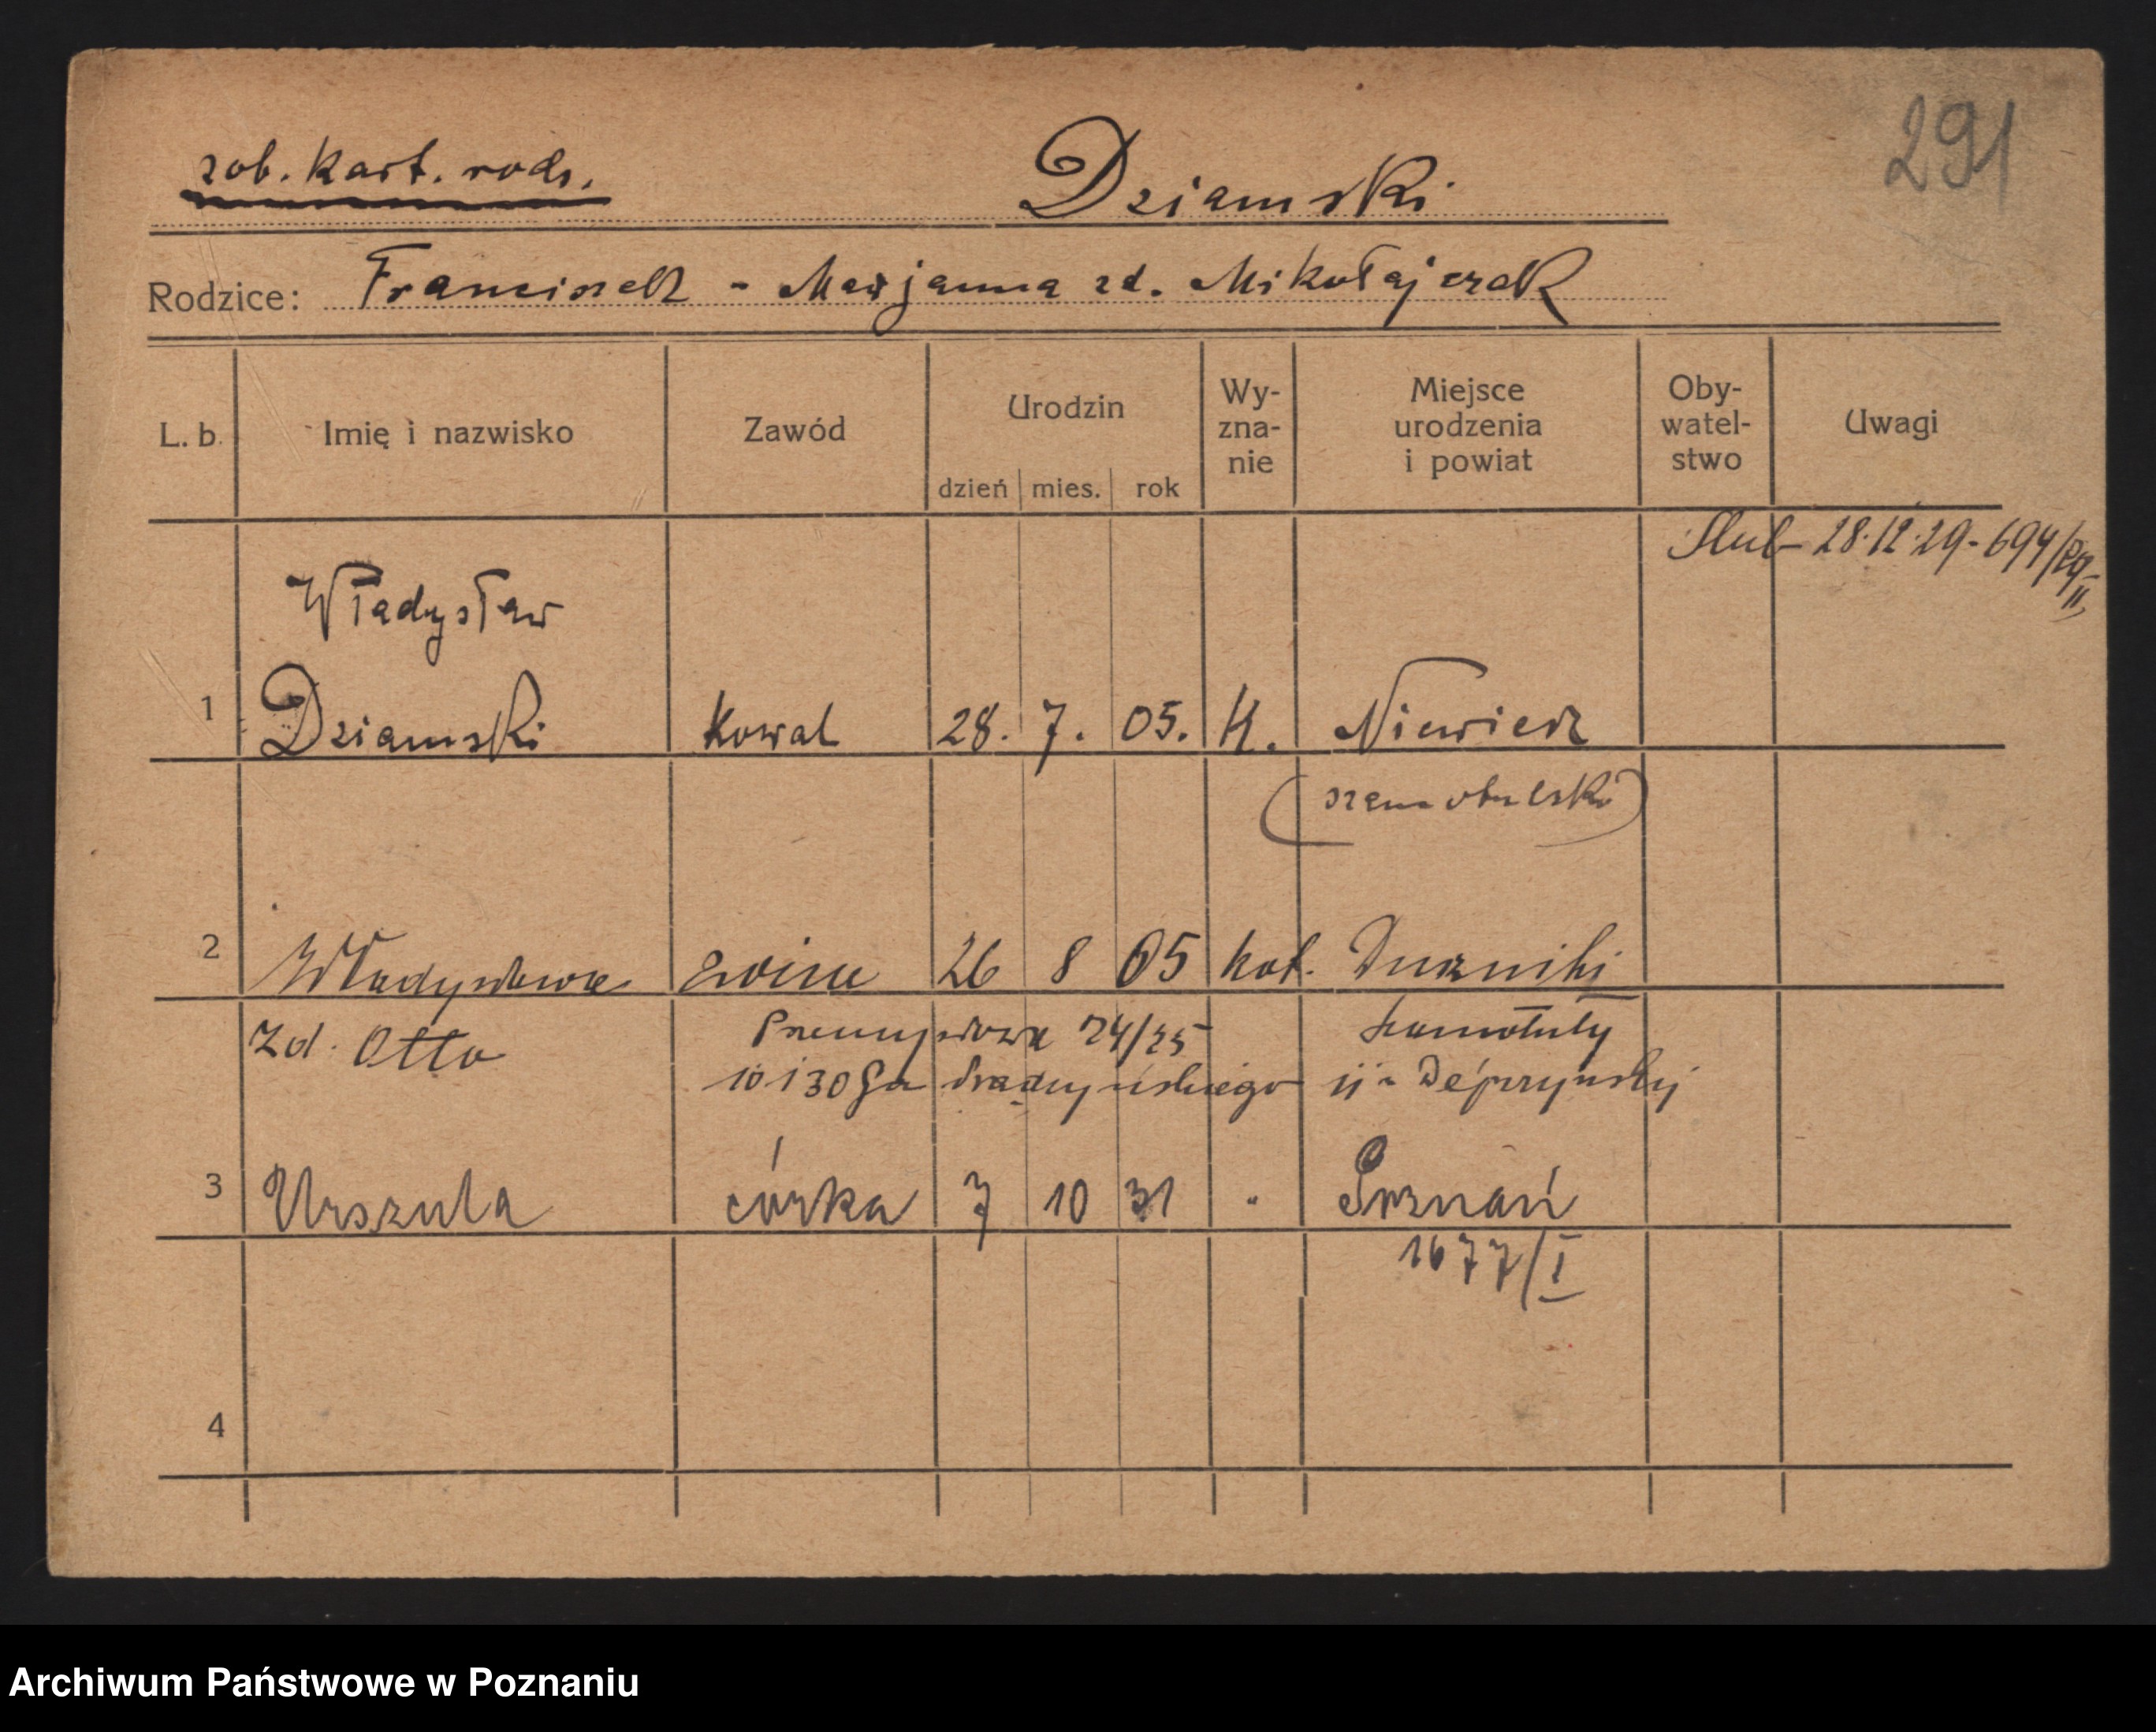 291
zob. kart. rodz.
Dziamski
Rodzice: Franciszek - Marjanna zd. Mikołajczak
L. b. Imię i nazwisko Zawód Urodzin dzień mies. rok Wy-zna-nie Miejsce urodzenia i powiat Oby-watel-stwo Uwagi
Ślub 28.12.29 - 694/29 II
Władysław
1 Dziamski Kowal 28. 7. 05. K. Niewierz
(szamotulski)
2 Władysława żona 26 8 05 kat. Duszniki
zd. Otto Przemysłowa 24/25 Szamotuły
10 i 30 Prądzyńskiego
3 Urszula córka 7 10 31 " Poznań
1677/I
4
Archiwum Państwowe w Poznaniu